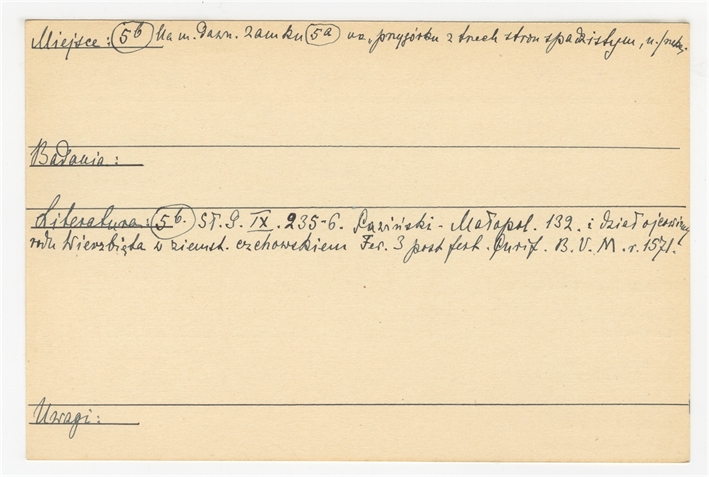 Miejsce: 5b Na m. dawn. zamku 5a na przygórku z trech stron spadzistym, n/
Badania:
Literatura: 5b. Sł. G. IX. 235-6. - Małopol. 132. i dział ojcowizny
rodu Wierzbięta w ziemst. czchowskiem Fer. 3 post fest. Purif. B. V. M. r. 1571.
Uwagi: